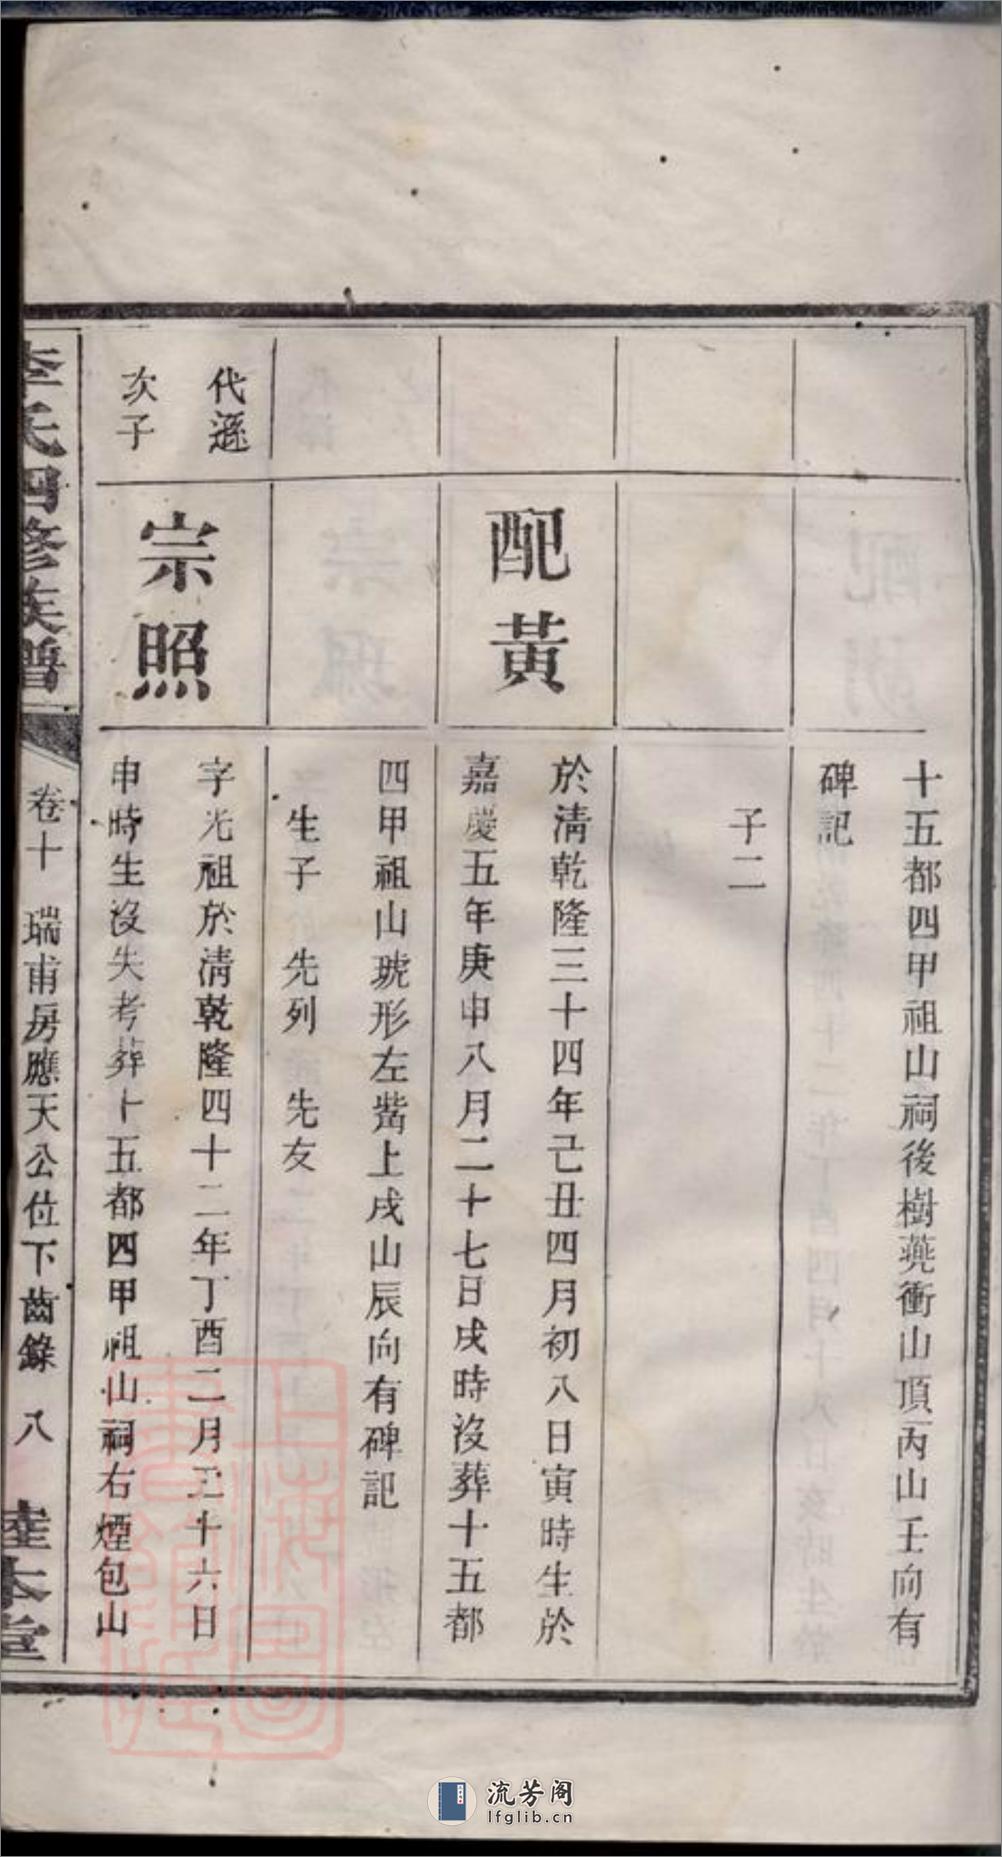 十五都四甲祖山祠後樹蕘衝山頂丙山壬向有
碑記
子二
配黃
於清乾隆三十四年己丑四月初八日寅時生於
嘉慶五年庚申八月二十七日戌時沒葬十五都
四甲祖山琥形左觜上戌山辰向有碑記
生子 先列 先友
代遜
次子
宗照
字光祖於清乾隆四十二年丁酉二月二十六日
申時生沒失考葬十五都四甲祖山祠右煙包山
李氏四修族譜
卷十 瑞甫房應天公位下齒錄 八
陸本堂
上海圖書館藏
流芳阁
lfglib.cn